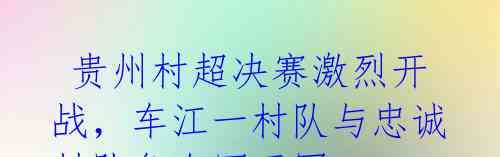 贵州村超决赛激烈开
战，车江一村队与忠诚